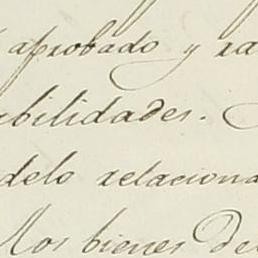 aprobado y ra
bilidades.
delo relaciona
los bienes del